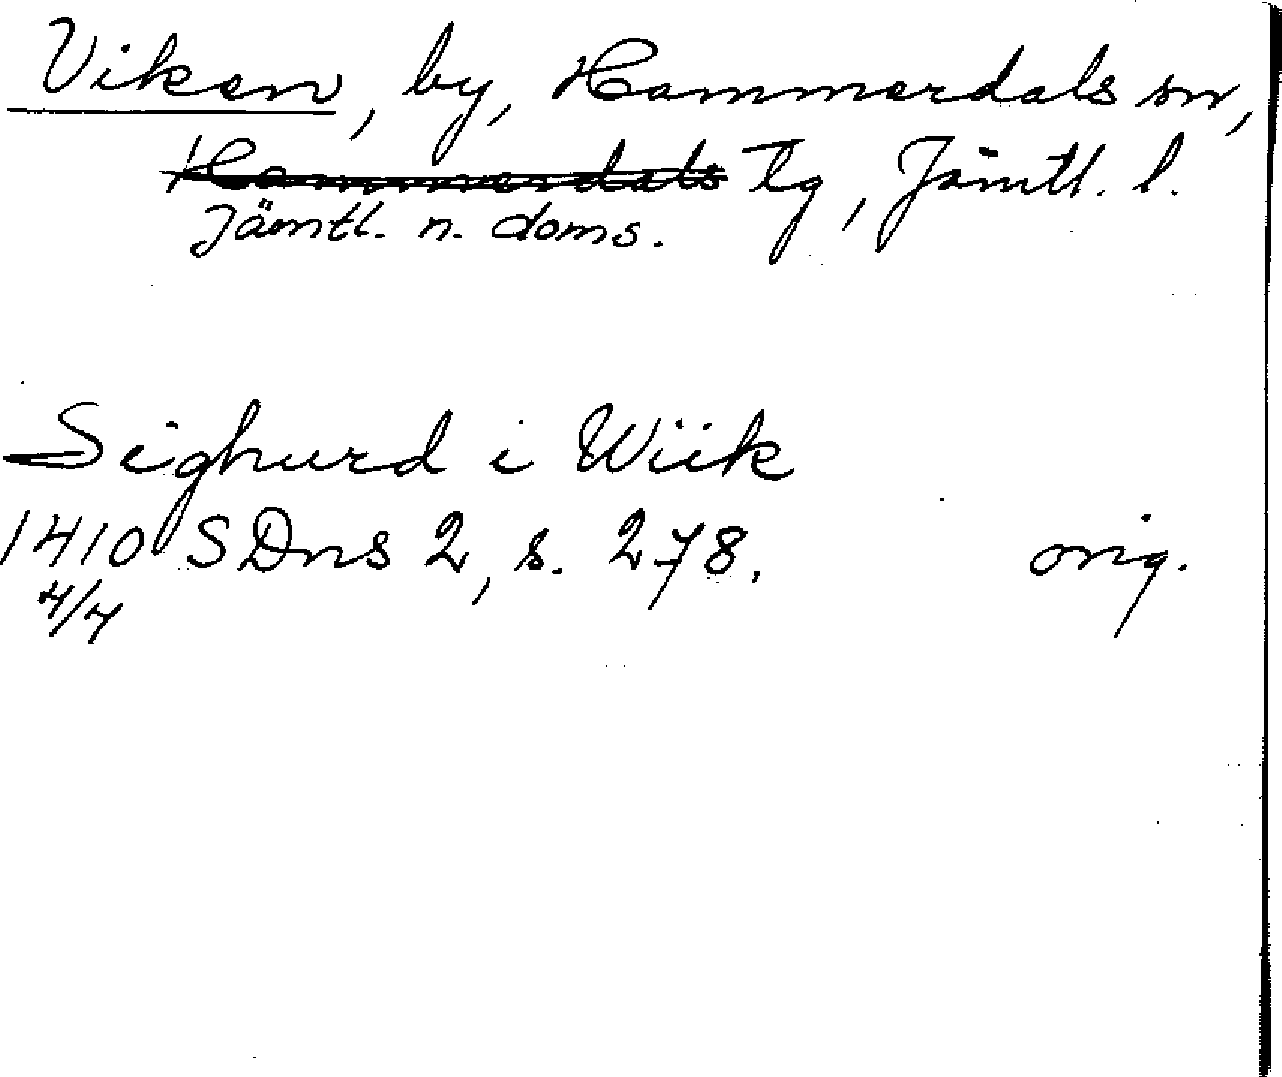 Viken, by, Hammerdals sn,
Hammerdals Tg, Jämtl. l.
Jämtl. n. doms.
Sighurd i Wiik
1410 SDns 2, s. 278. orig.
4/4